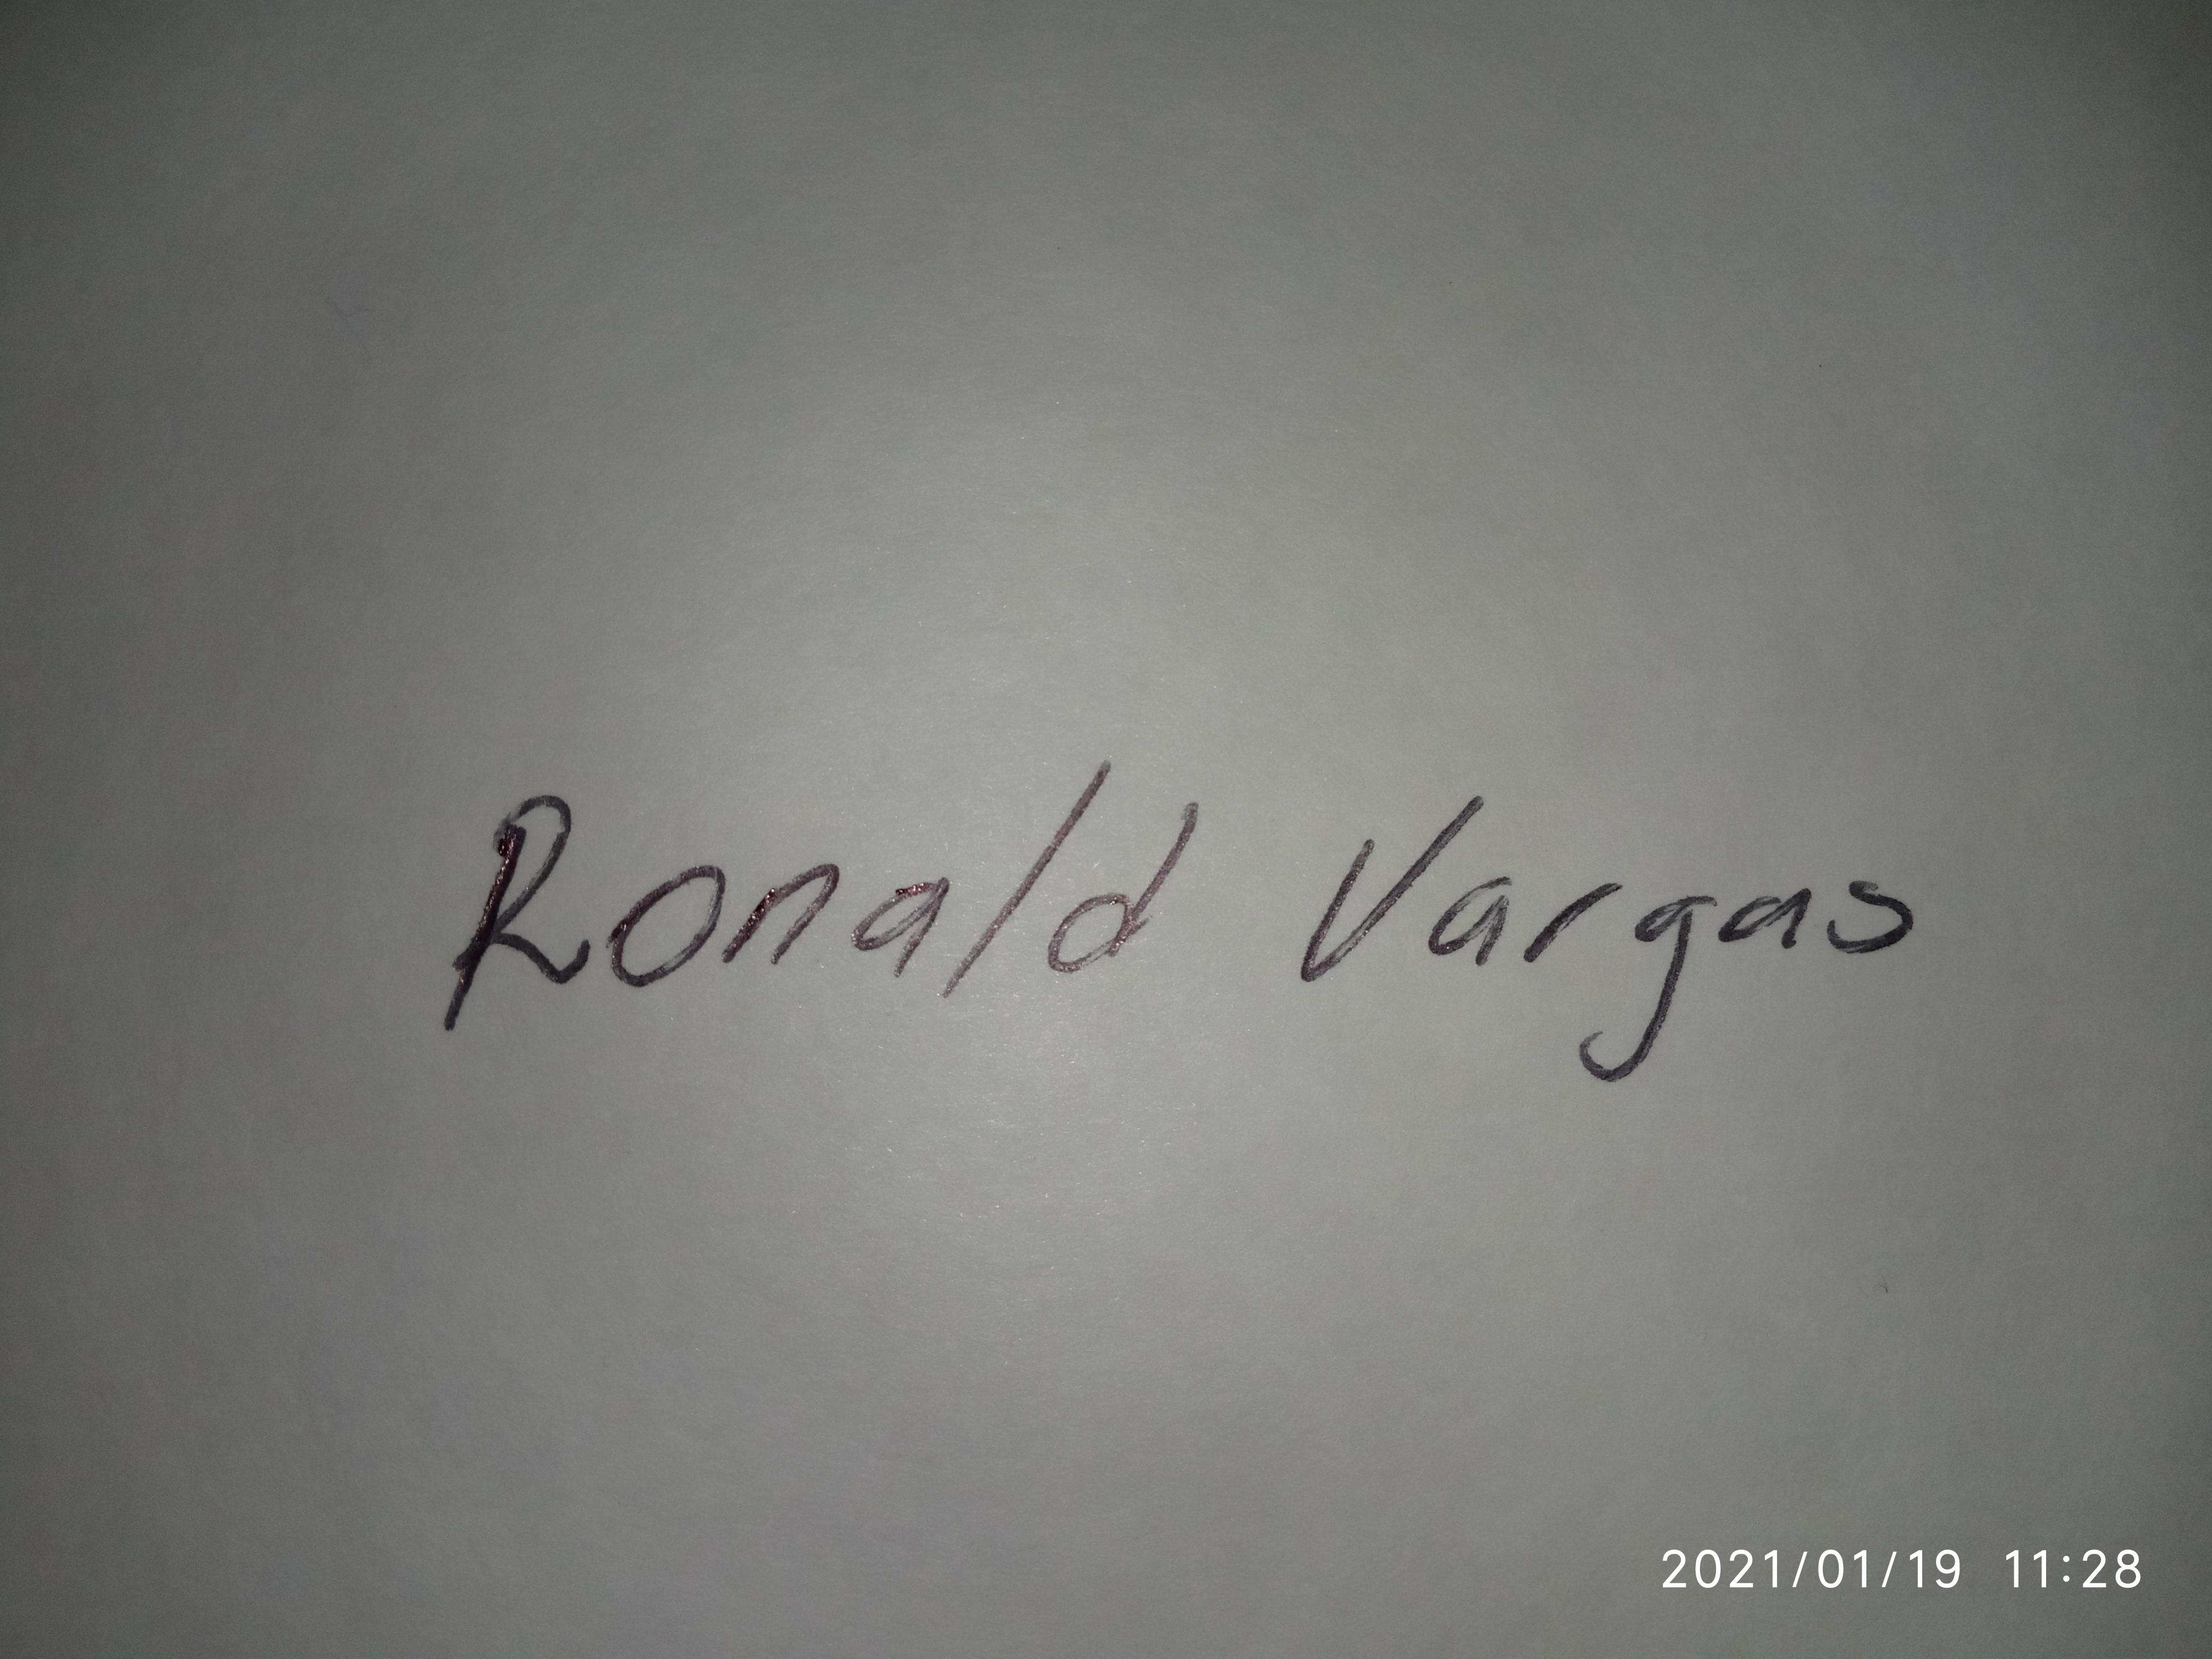 Ronald Vargas
2021/01/19 11:28